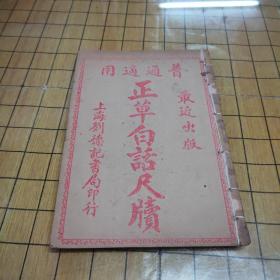 普通適用
最近出版
正草白話尺牘
上海劉德記書局印行